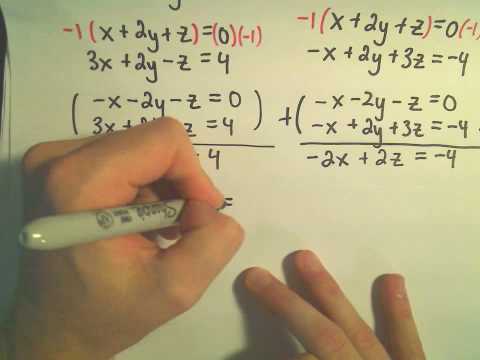 -1(x + 2y + z) = (0)(-1)
3x + 2y - z = 4
(-x - 2y - z = 0)
3x z = 4
4
=
-1(x + 2y + z) = 0(-1)
-x + 2y + 3z = -4
+(-x - 2y - z = 0
-x + 2y + 3z = -4
-2x + 2z = -4